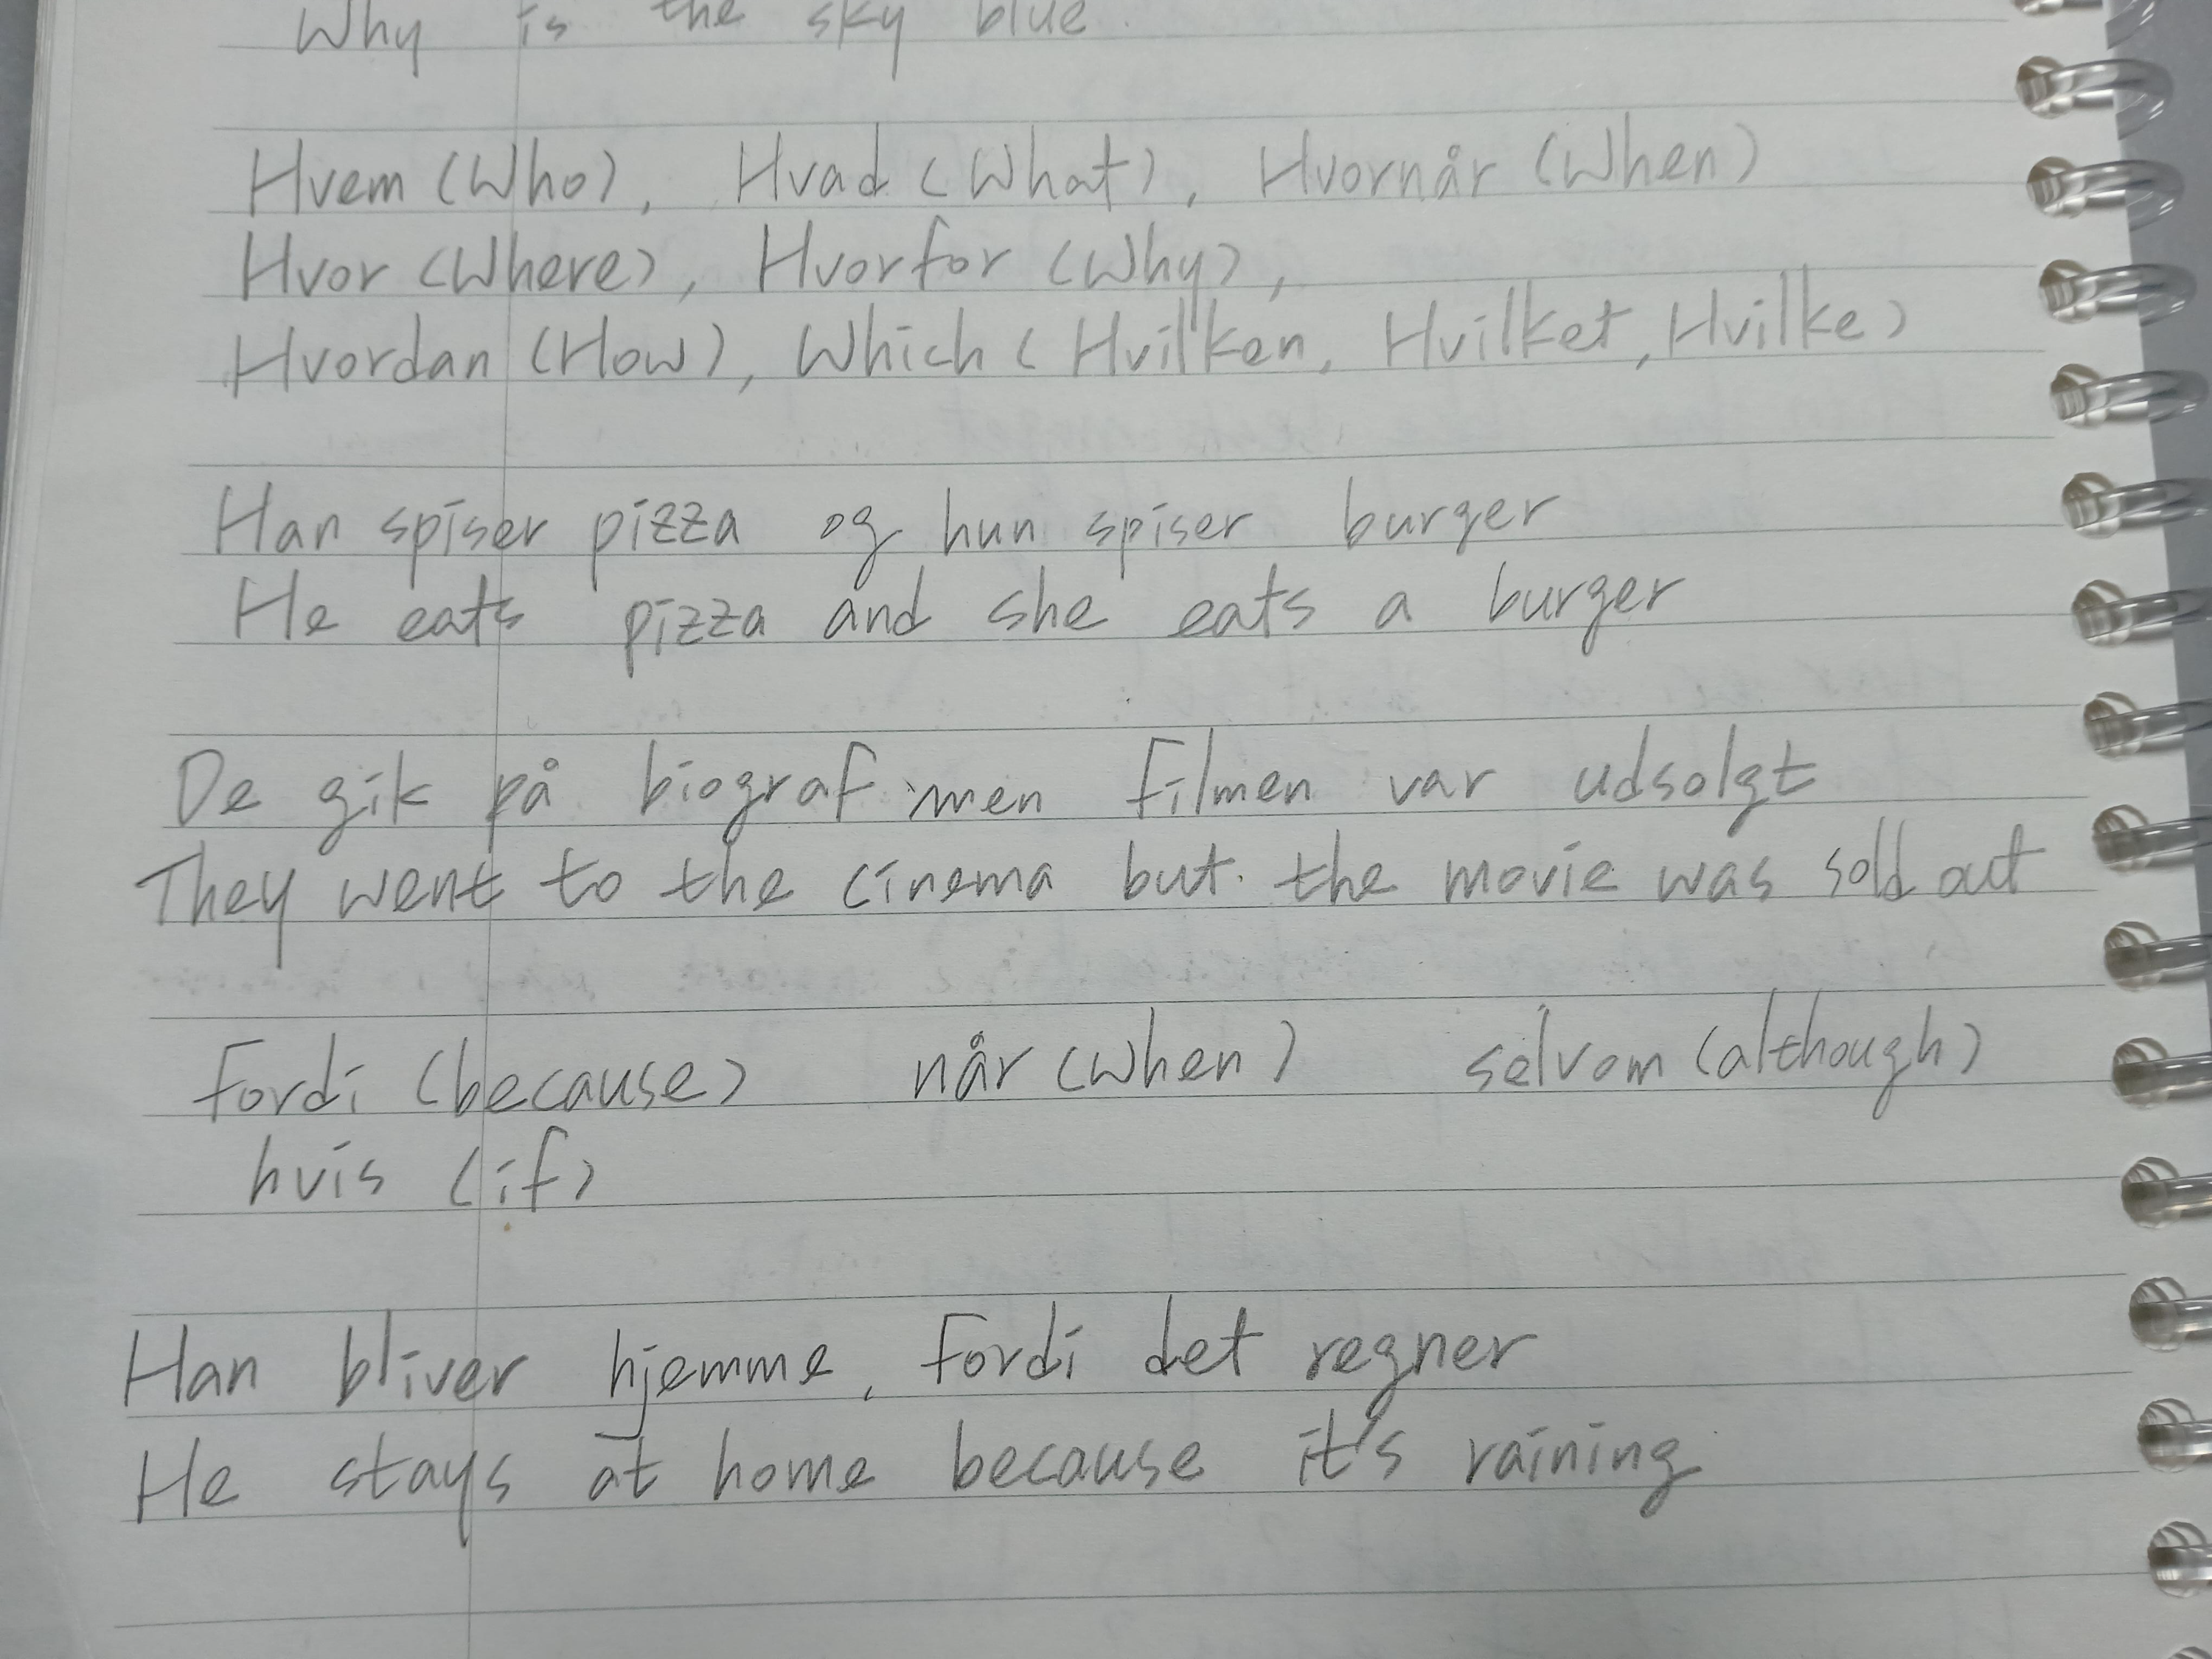 Why is the sky blue.
Hvem (Who), Hvad (What), Hvornår (When)
Hvor (Where), Hvorfor (Why),
Hvordan (How), Which (Hvilken, Hvilket, Hvilke)
Han spiser pizza og hun spiser burger
He eats pizza and she eats a burger
De gik på biograf men filmen var udsolgt
They went to the cinema but the movie was sold out
Fordi (because) når (when) selvom (although)
hvis (if)
Han bliver hjemme, Fordi det regner
He stays at home because it's raining